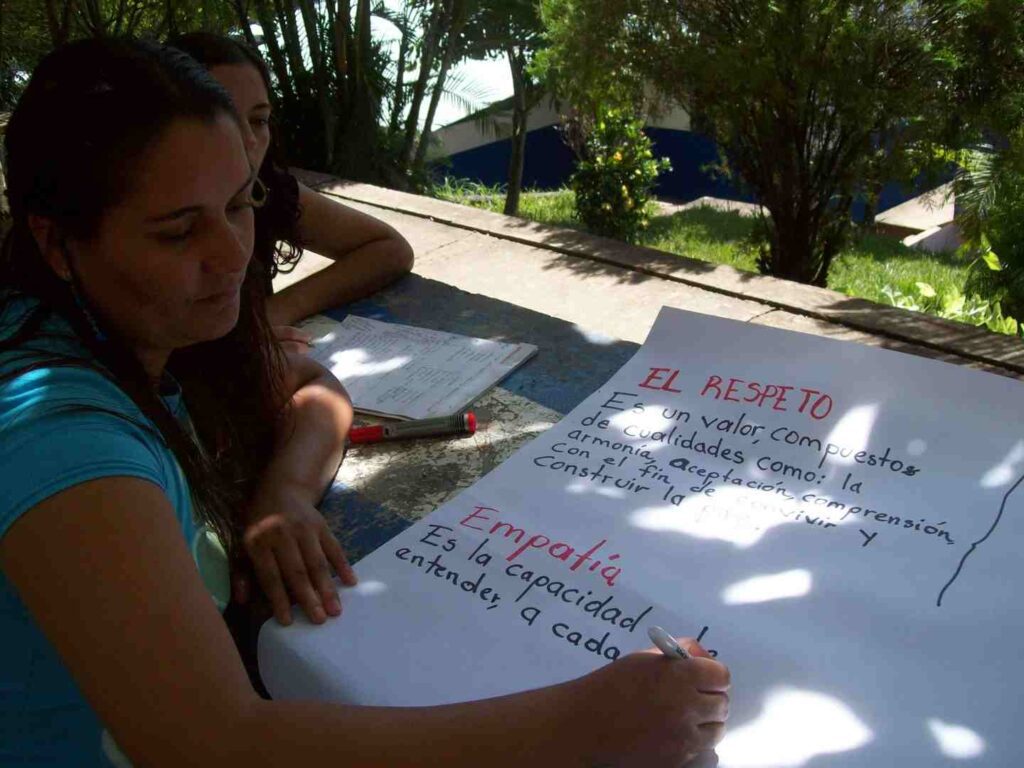 EL RESPETO
Es un valor, compuestos
de cualidades como: la
armonía, aceptación, comprensión,
con el fin de convivir y
construir la paz.
Empatía
Es la capacidad
entender, a cada